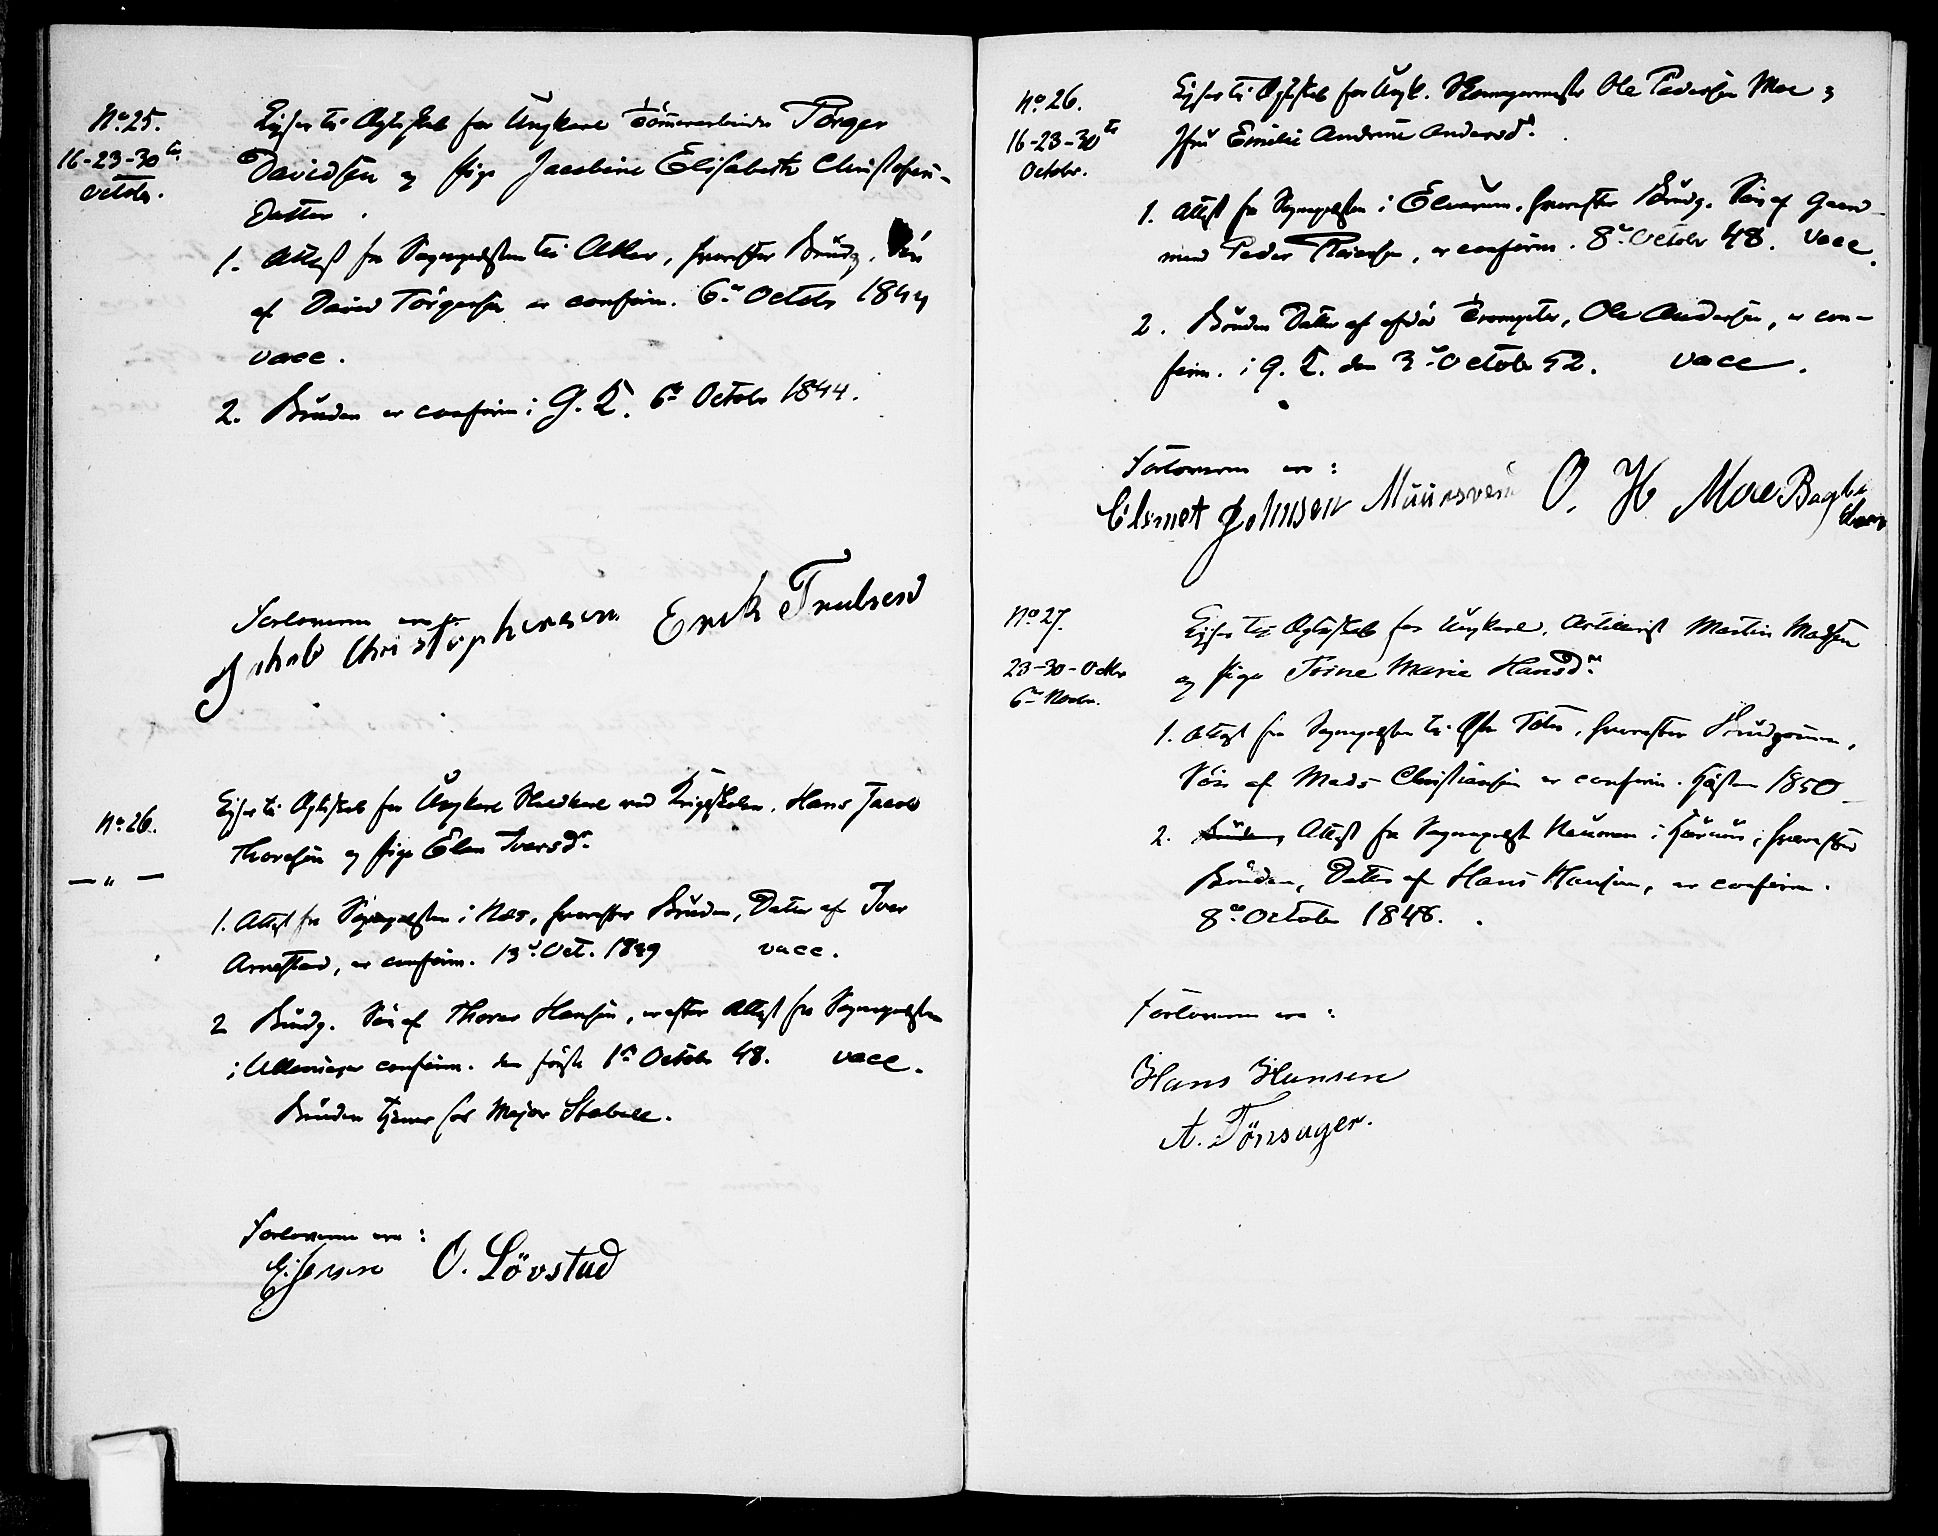 No 25.
16-23-30te
Octobr.
Lyses til Ægteskab for Ungkarl Tømmerarbeider Törger
Davidsen og Pige Jacobine Elisabeth Christophers-
Datter.
1. Attest fra Sognepresten til Aker, hvorefter Brudg. Sön
af David Törgersen er confirm. 6te Octobr 1844
vacc.
2. Bruden er confirm i G. K. 6te Octobr 1844.
Forloverne ere
Jakob Christophersen Erik Trulsen
No 26.
— " —
Lyses til Ægteskab for Ungkarl Staldkarl ved Rigsstalden, Hans Jacob
Thoresen og Pige Elen Iversdr.
1. Attest fra Sognepresten i Næs, hvorefter Bruden, Datter af Iver
Arnestad, er confirm. 13de Oct. 1839 vacc.
2 Brudg. Sön af Thorer Hansen, er efter Attest fra Sognepresten
i Ullensager confirm. den 1ste Octobr 48. vacc.
Bruden tjener hos Major Stabell.
Forloverne ere:
E. Jensen O. Lövstad
No 26.
16-23-30te
Octobr.
Lyses til Ægteskab for Ungk. Ole Pedersen Moe og
Jfru Emilie Andrine Andersdr.
1. Attest fra Sognepresten i Elverum, hvorefter Brudg. Sön af Gaard-
mand Peder, er confirm. 8de Octobr 48. vacc.
2. Bruden Datter af afdød Trompeter, Ole Andersen, er con-
firm. i G. K. den 3de Octobr 52. vacc.
Forloverne ere:
Clemet Johnsen Muursvend O. H Moe
No 27.
23-30-Octbr
6te Novbr.
Lyses til Ægteskab for Ungkarl, Artillerist Martin Madsen
og Pige Trine Marie Hansdr.
1. Attest fra Sognepresten til Østre Toten, hvorefter Brudgommen,
Sön af Mads Christiansen er confirm. Hösten 1850
2. Bruden, Attest fra Sogneprest Neumann i, hvorefter
Bruden, Datter af Hans Hansen, er confirm.
8de Octobr 1848.
Forloverne ere:
Hans Hansen
A. Tönsager.